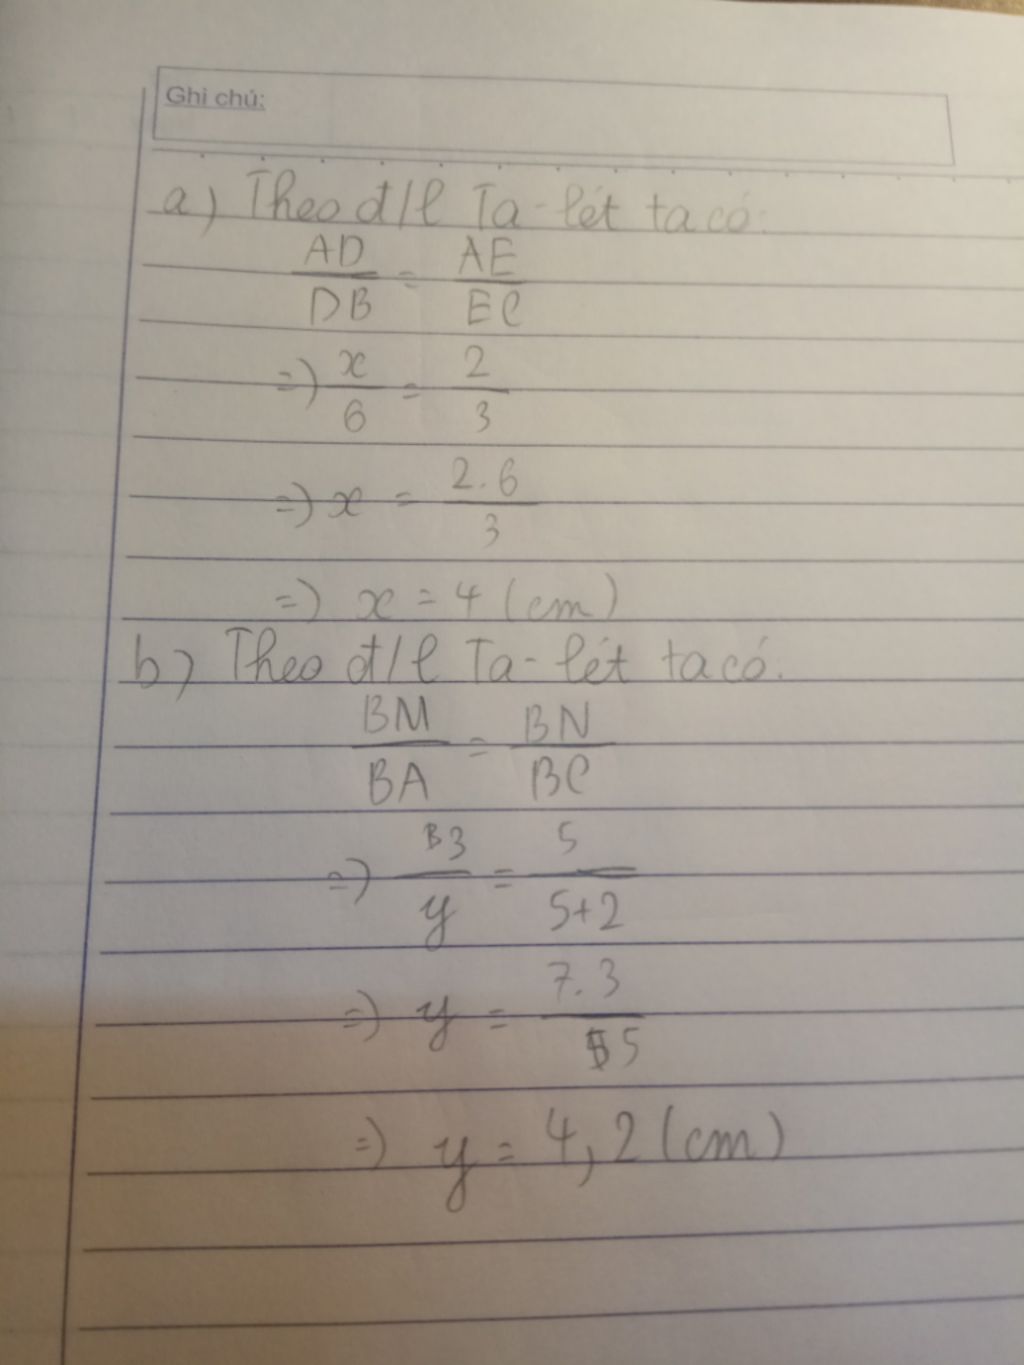 Ghi chú:
a) Theo đ/l Ta-lét ta có:
AD/DB = AE/EC
=) x/6 = 2/3
=) x = 2.6/3
=) x = 4 (cm)
b) Theo đ/l Ta-lét ta có.
BM/BA = BN/BC
=) 3/y = 5/5+2
=) y = 7.3/5
=) y = 4,2 (cm)